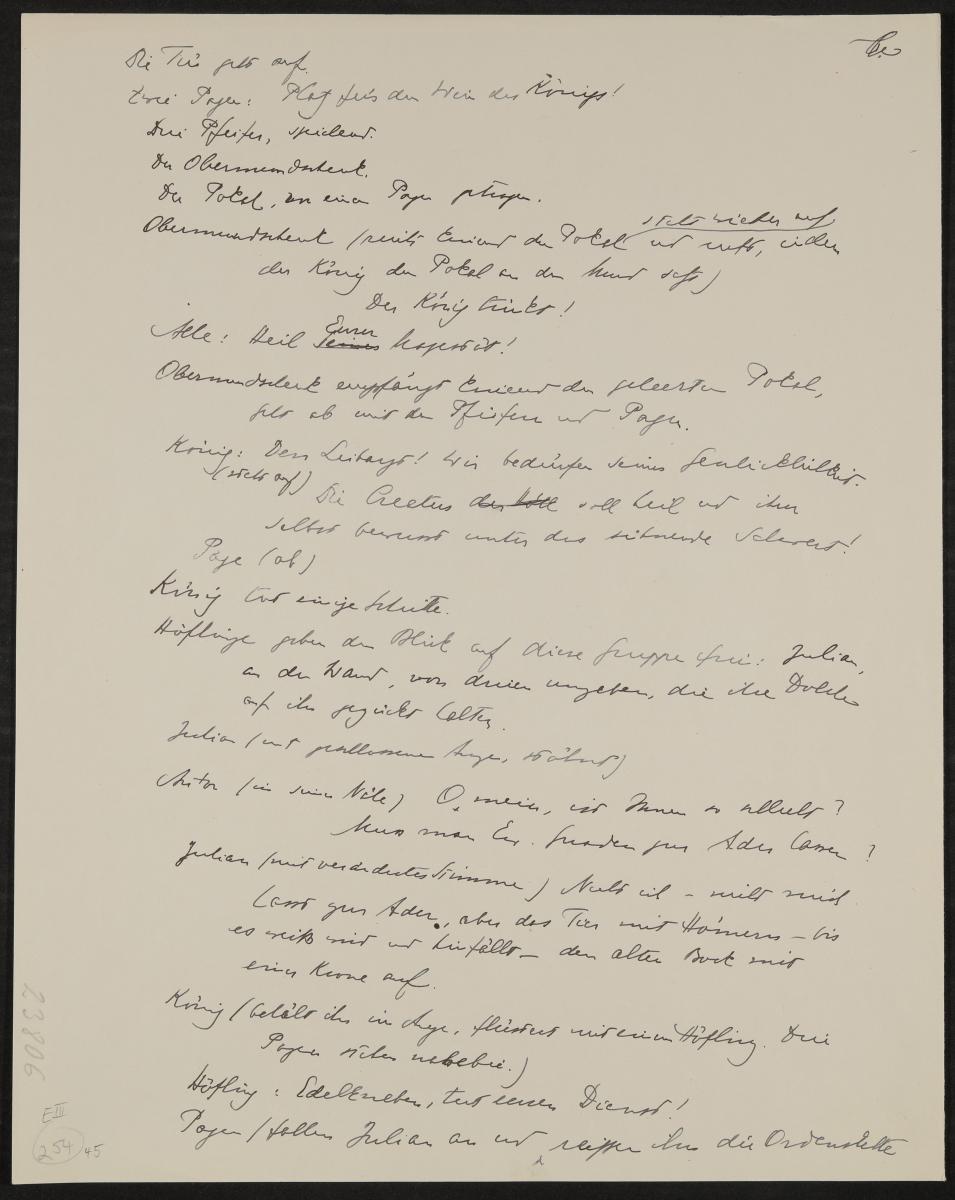 b.
Die Tür geht auf.
Zwei Pagen: Platz für den Wein des Königs!
Drei Pfeifer, spielend.
Der Obermundschenk.
Der Pokal, von einem Pagen getragen.
steht wieder auf
Obermundschenk (reicht kniend den Pokal und ruft, indem
der König den Pokal an den Mund setzt)
Der König trinkt!
Alle: Heil Seiner Eurer Majestät!
Obermundschenk empfängt kniend den geleerten Pokal,
geht ab mit den Pfeifern und Pagen.
König: Den Leibarzt! Wir bedürfen seiner Geschicklichkeit.
(steht auf)
Die Creatur der soll heil und ihrer
selbst bewusst unter das sühnende Schwert!
Page (ab)
König tut einige Schritte.
Höflinge geben den Blick auf diese Gruppe frei: Julian,
an der Wand, von dreien umgeben, die ihre Dolche
auf ihn gezückt halten.
Julian (mit geschlossenen Augen, stöhnt)
Anton (in seiner Nähe) O mein, ist Ihnen so schlecht?
Muss man Eu. Gnaden zur Ader lassen?
Julian (mit veränderter Stimme) Nicht ich – nicht mich
lasst zur Ader, aber das Tier mit Hörnern – bis
es weiß wird und hinfällt – den alten Bock mit
einer Krone auf.
König (behält ihn im Auge, flüstert mit einem Höfling. Drei
Pagen stehen nebebei.)
Höfling: Edelknaben, tut euren Dienst!
Pagen (fallen Julian an und reissen ihm die Ordenskette
23806
E III
254
45